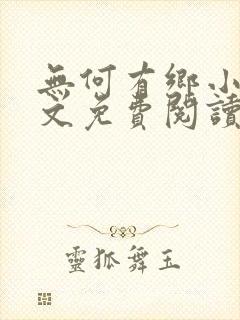 無何有鄉小
文免費閱讀
靈狐舞玉